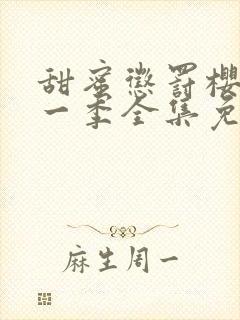 甜蜜懲罰櫻
一季全集免
麻生周一